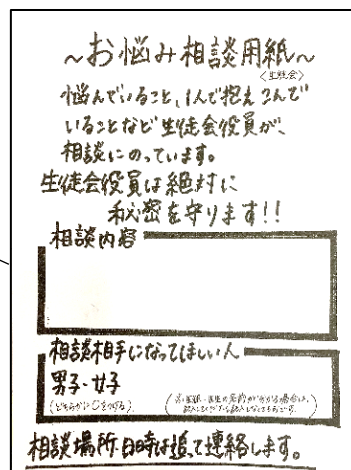 ～お悩み相談用紙～
〈生徒会〉
悩んでいること、1人で抱えこんで
いることなど生徒会役員が、
相談にのっています。
生徒会役員は絶対に
秘密を守ります!!
相談内容
相談相手になってほしい人
男子・女子
(どちらかに○をつける)
相談場所、日時は追って連絡します。